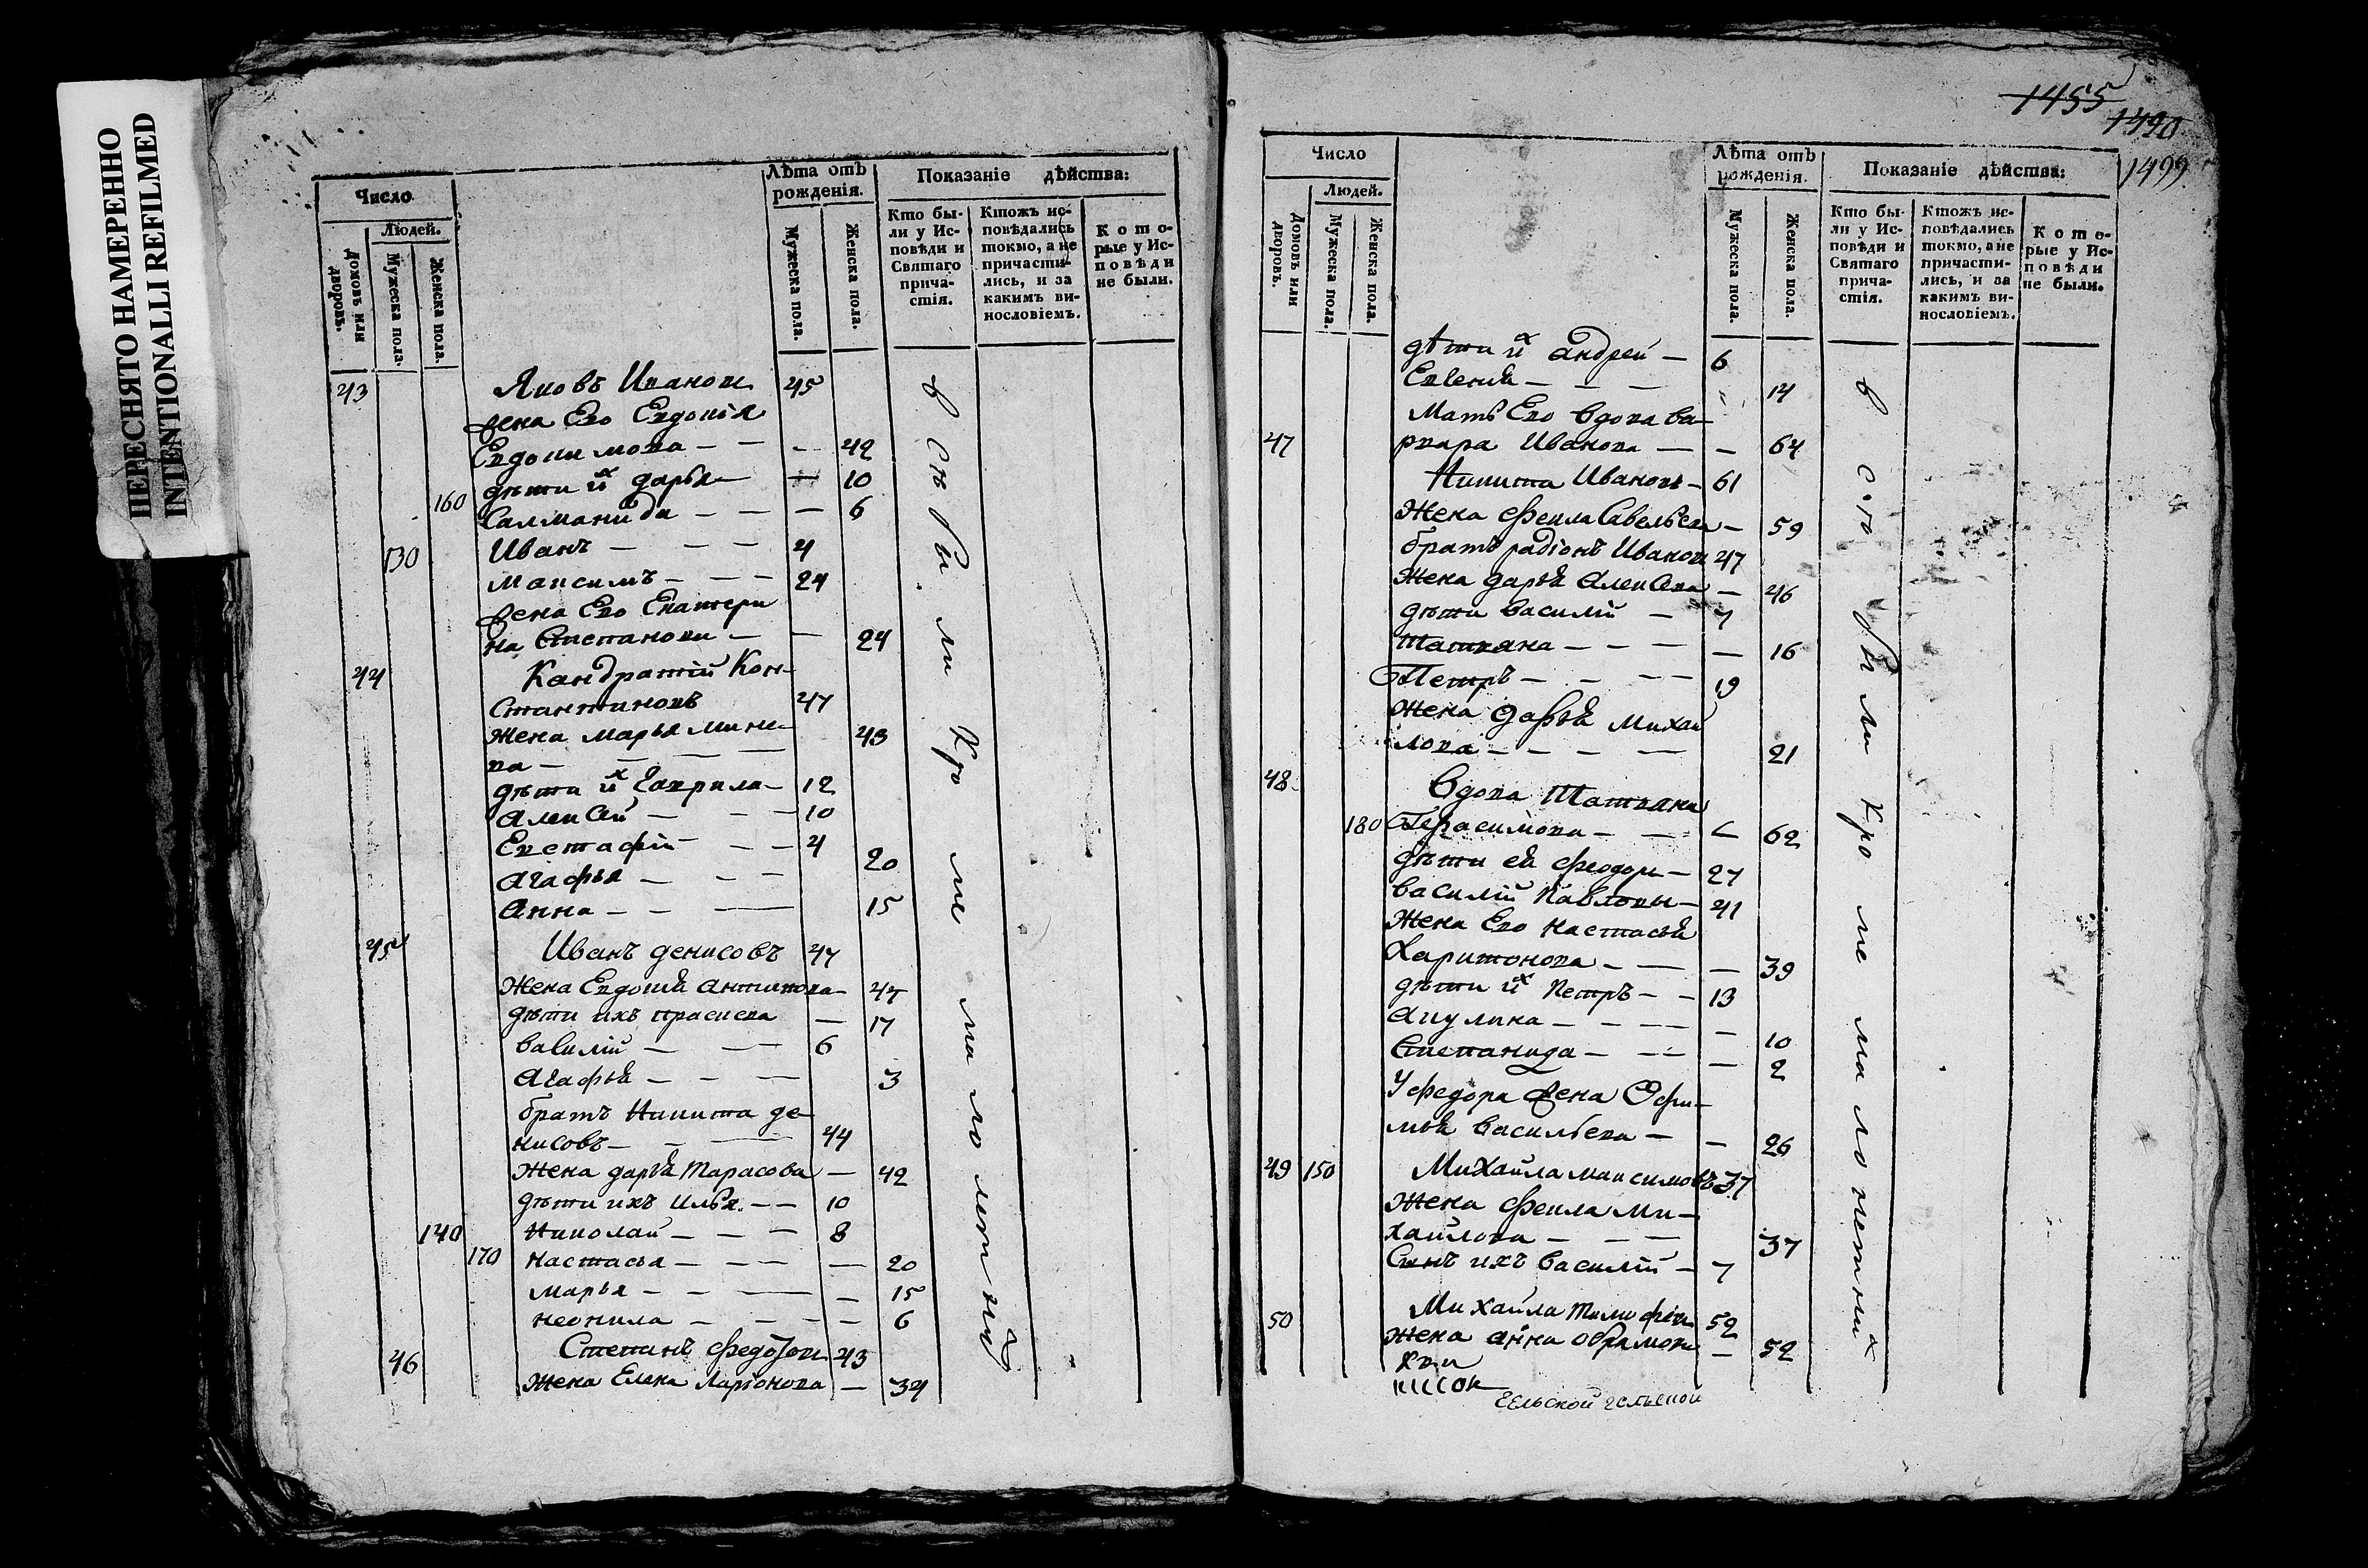 ПЕРЕСНЯТО НАМЕРЕННО
INTENTIONALLI REFILMED
Число
Людей.
Домовъ или дворовъ.
Мужеска пола.
Женска пола.
Лѣта отъ рожденія.
Мужеска пола.
Женска пола.
Показаніе дѣйства:
Кто бы-
ли у Ис-
повѣди и
Святаго
прича-
стія.
Ктожъ ис-
повѣдались
токмо, а не
причасти-
лись, и за
какимъ ви-
нословіемъ.
Кото-
рые у Ис-
повѣди
не были.
43 Яковъ Иванов 45
жена Его Евдокія
Евдокимова - - - 42
160 дѣти их дарья - 10
Салманида - - - 6
130 Иванъ - - - 4
Максимъ - - - 24
жена Его Екатери
на Степанова - - 24
44 Кандратій Кон-
стантиновъ 47
жена марья мине-
ва - - - 43
дѣти их Гаврила - 12
алексей - - - 10
Евстафій - - - 4
агафья - - - 20
анна - - - 15
45 Иванъ денисовъ 47
жена Евдокія антипова - 47
дѣти ихъ праскева - 17
василій - - 6
агафья - - - 3
братъ Никита де-
нисовъ - - - 44
жена дарья Тарасова - 42
дѣти ихъ илья - - 10
140 николай - - - 8
170 настасья - - - - 20
марья - - - - 15
неонила - - - - 6
46 Степанъ федотов 43
жена Елена Ларіонова - 34
всѣ были кроме малолѣтных
1455
1490
1499
Число
Людей.
Домовъ или дворовъ.
Мужеска пола.
Женска пола.
Лѣта отъ рожденія.
Мужеска пола.
Женска пола.
Показаніе дѣйства:
Кто бы-
ли у Ис-
повѣди и
Святаго
прича-
стія.
Ктожъ ис-
повѣдались
токмо, а не
причасти-
лись, и за
какимъ ви-
нословіемъ.
Кото-
рые у Ис-
повѣди
не были.
дѣти их андрей - 6
Евгения - - - 14
мать Его вдова ва-
47 рвара Иванова - - 64
Никита Ивановъ - 61
жена фекла Савельева - 59
братъ радіонъ Иванов 47
жена дарья алексева - 46
дѣти василій - 7
татьяна - - - - 16
Петръ - - - - 19
жена дарья михаи
лова - - - - 21
48 вдова татьяна
180 Герасимова - - - 62
дѣти ея феодоръ - 27
василій Павловы - 41
жена Его настасья
харитонова - - - 39
дѣти их Петръ - - 13
акулина - - - - 10
степанида - - - - 2
У федора жена Офи-
мья васильева - - 26
49 150 Михаила максимовъ 37
жена фекла ми-
хайлова - - - 37
Сынъ ихъ василій - 7
50 Михаила тимофѣев 52
жена анна обрамова - 52
всѣ были кроме малолетных